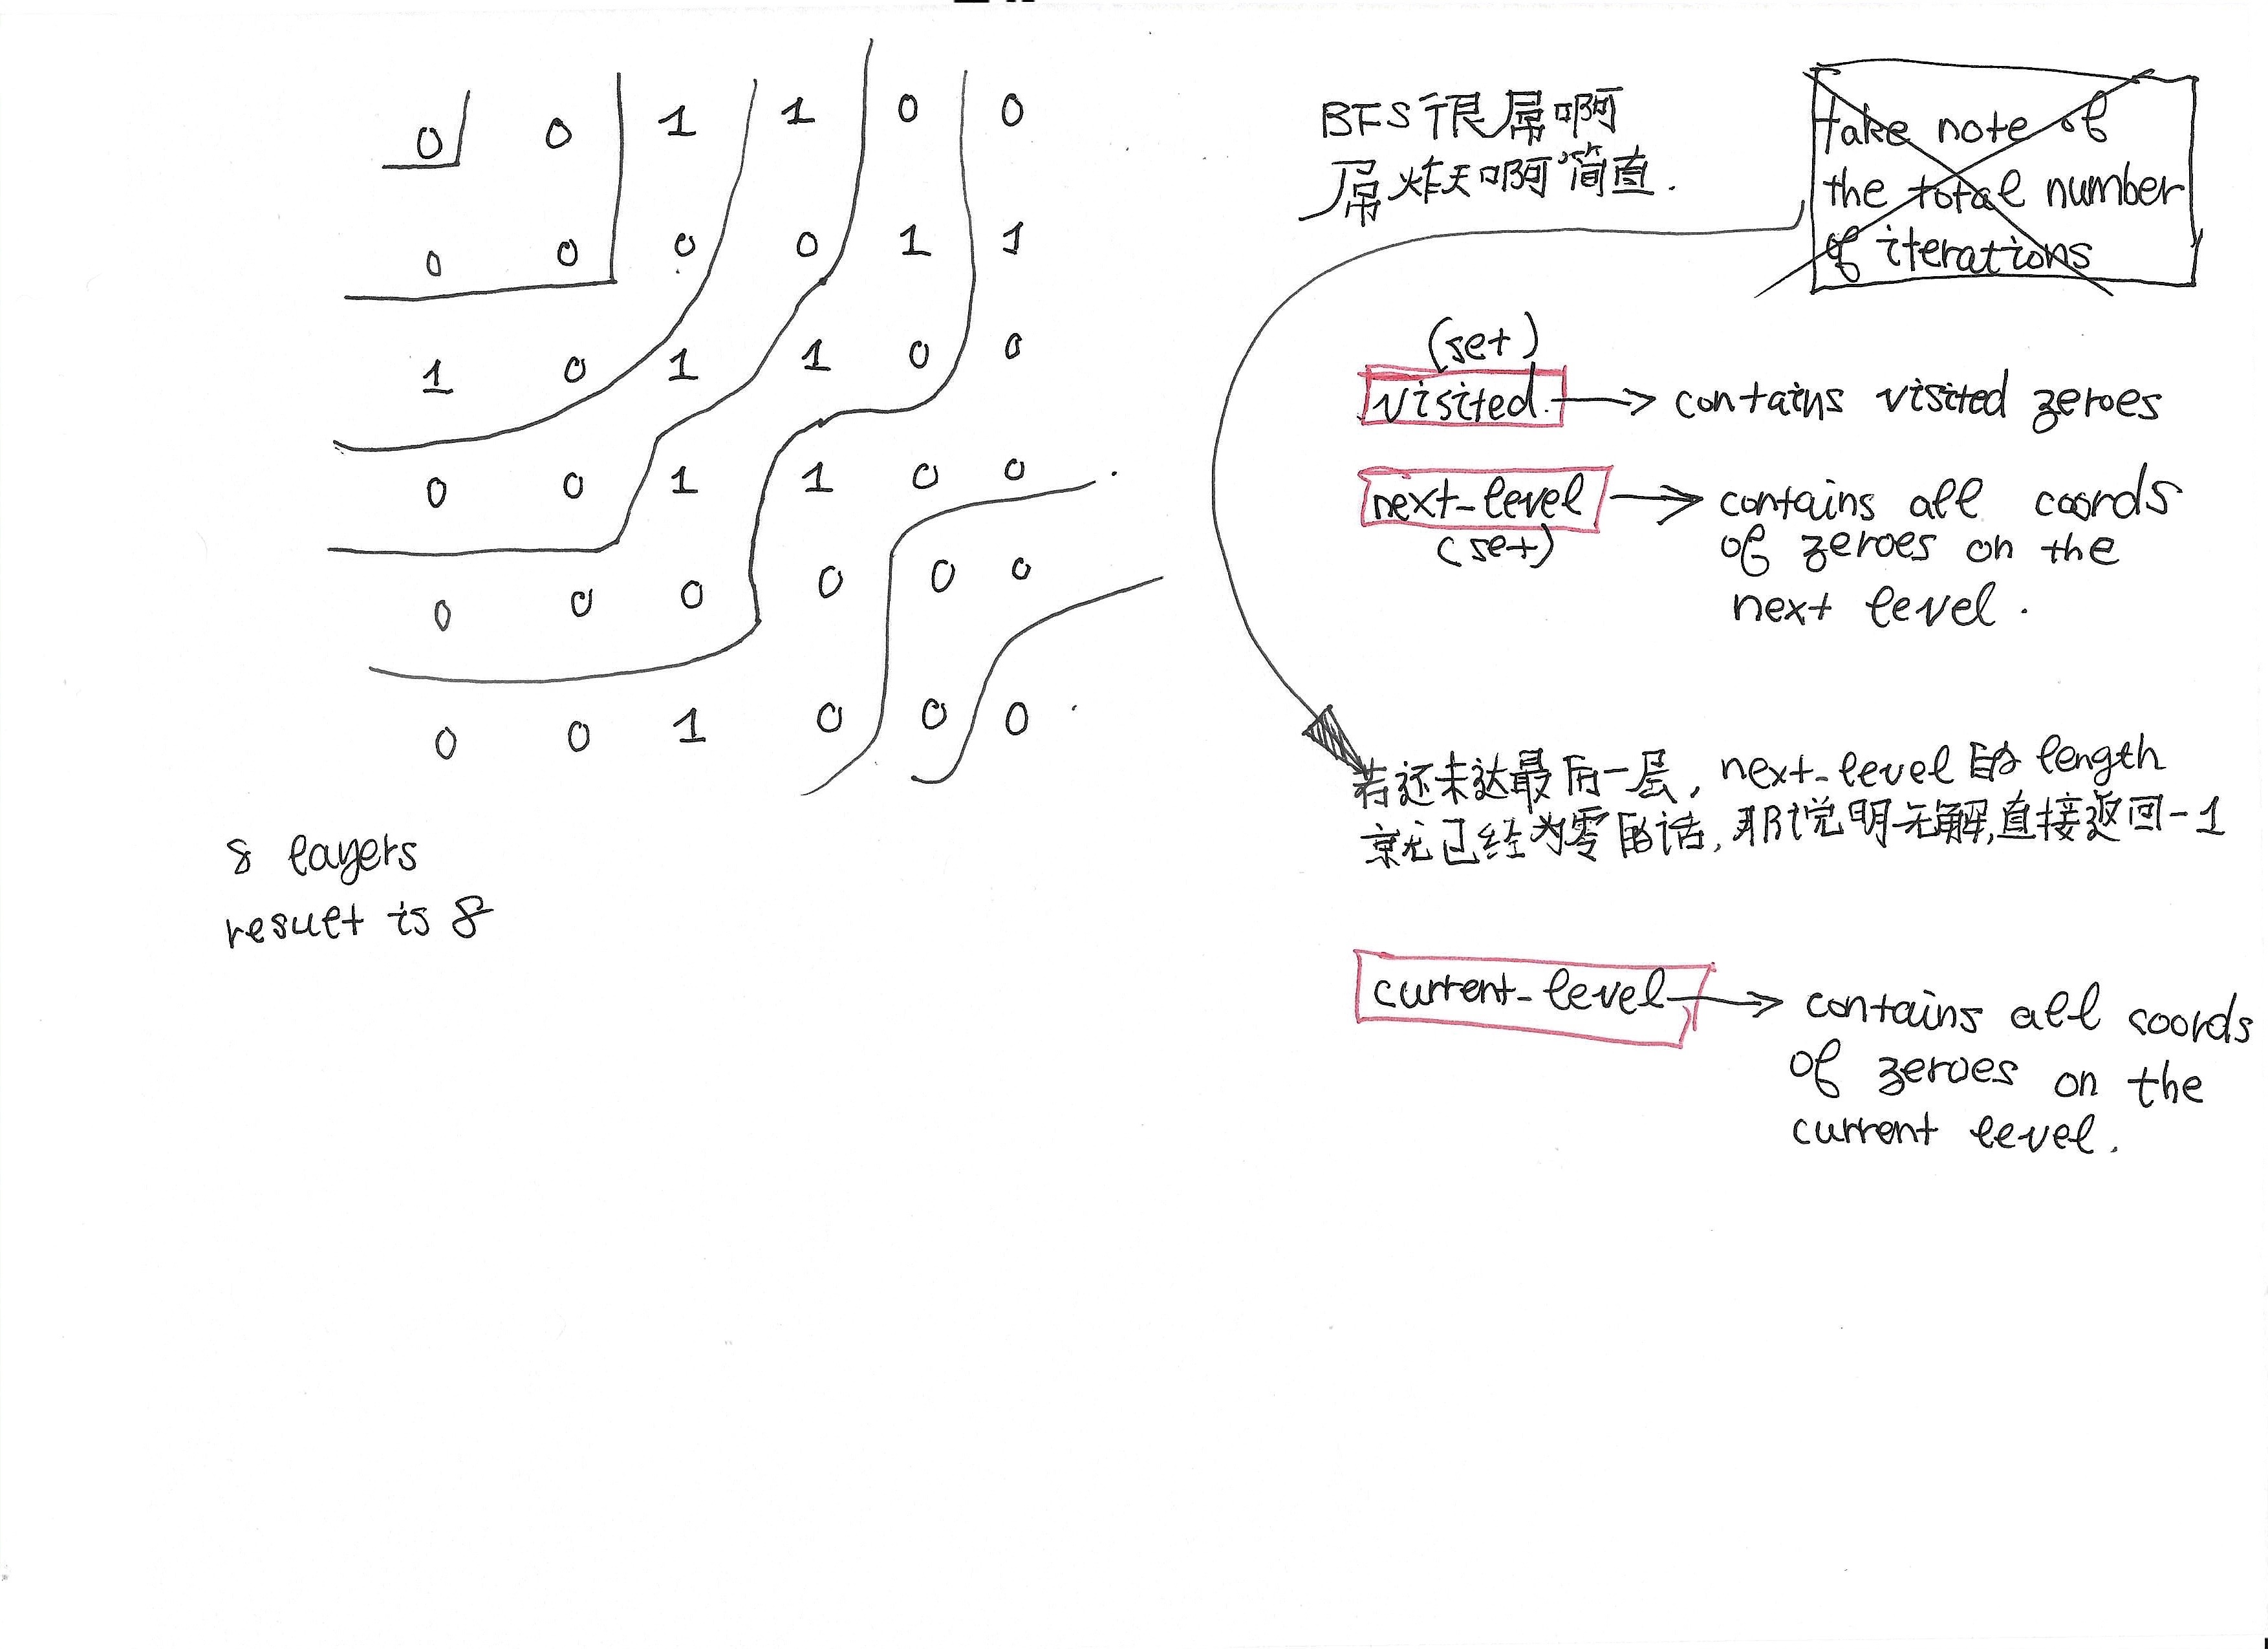 0 0 1 1 0 0
0 0 0 0 1 1
1 0 1 1 0 0
0 0 1 1 0 0
0 0 0 0 0 0
0 0 1 0 0 0
8 layers
result is 8
BFS很屌啊
屌炸天啊简直.
take note of
the total number
of iterations
(set)
visited → contains visited zeroes
next-level → contains all coords
(set)
of zeroes on the
next level.
若还未达最后一层, next-level的length
就已经为零的话, 那说明无解,直接返回-1
current-level → contains all coords
of zeroes on the
current level.